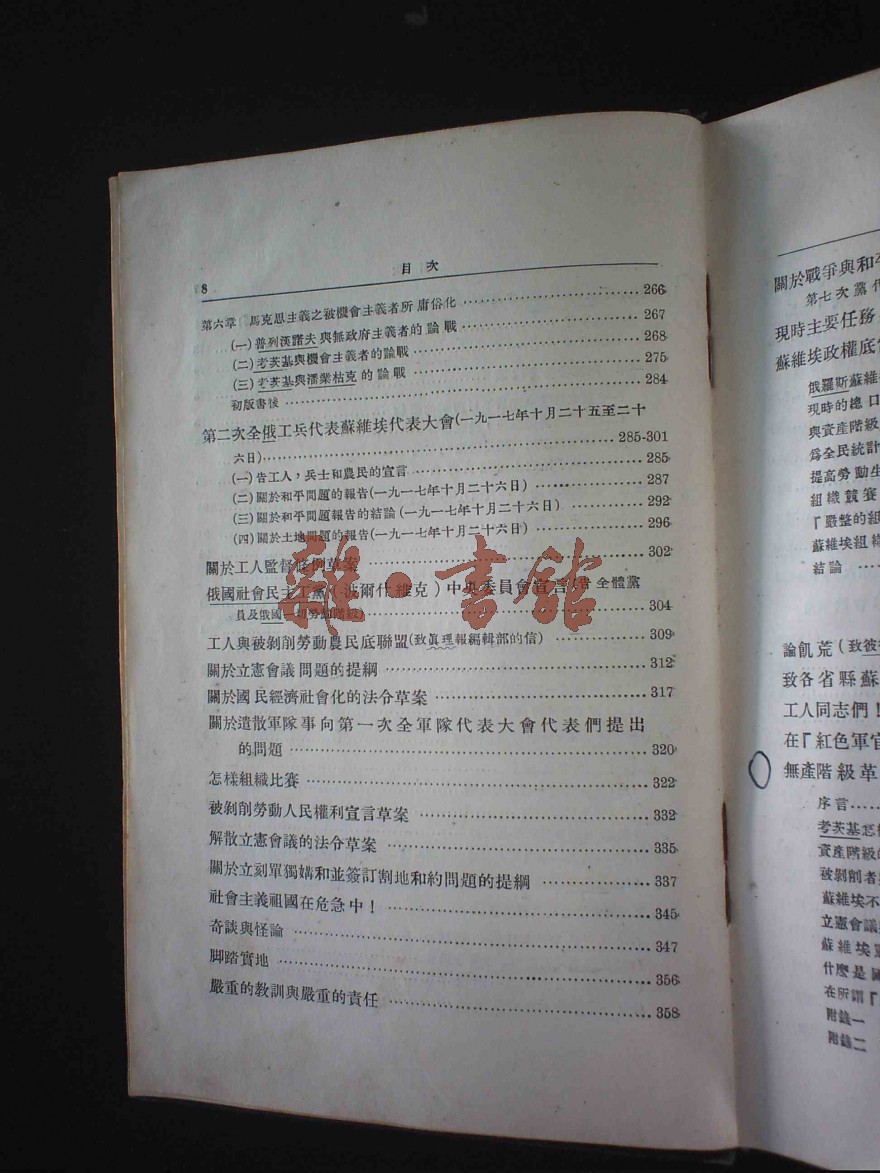 8
目次
第六章 馬克思主義之被機會主義者所庸俗化 266
(一)普列漢諾夫與無政府主義者的論戰 267
(二)考茨基與機會主義者的論戰 268
(三)考茨基與潘業枯克的論戰 275
初版書後 284
第二次全俄工兵代表蘇維埃代表大會(一九一七年十月二十五至二十
六日) 285-301
(一)告工人,兵士和農民的宣言 285
(二)關於和平問題的報告(一九一七年十月二十六日) 287
(三)關於和平問題報告的結論(一九一七年十月二十六日) 292
(四)關於土地問題的報告(一九一七年十月二十六日) 296
關於工人監督條例草案 302
俄國社會民主工黨(波爾什維克)中央委員會宣言(告全體黨
員及俄國一切勞動階級) 304
工人與被剝削勞動農民底聯盟(致眞理報編輯部的信) 309
關於立憲會議問題的提綱 312
關於國民經濟社會化的法令草案 317
關於遣散軍隊事向第一次全軍隊代表大會代表們提出
的問題 320
怎樣組織比賽 322
被剝削勞動人民權利宣言草案 332
解散立憲會議的法令草案 335
關於立刻單獨媾和並簽訂割地和約問題的提綱 337
社會主義祖國在危急中! 345
奇談與怪論 347
脚踏實地 356
嚴重的教訓與嚴重的責任 358
雜·書館
關於戰爭與和平
第七次黨代
現時主要任務
蘇維埃政權底
俄羅斯蘇維
現時的總口
與資產階級
爲全民統計
提高勞動生
組織競賽
『嚴整的組
蘇維埃組織
結論
論飢荒(致彼
致各省縣蘇
工人同志們!
在『紅色軍官
無產階級革
序言
考茨基怎
資產階級的
被剝削者
蘇維埃不
立憲會議
蘇維埃憲
什麼是國
在所謂『
附錄一
附錄二